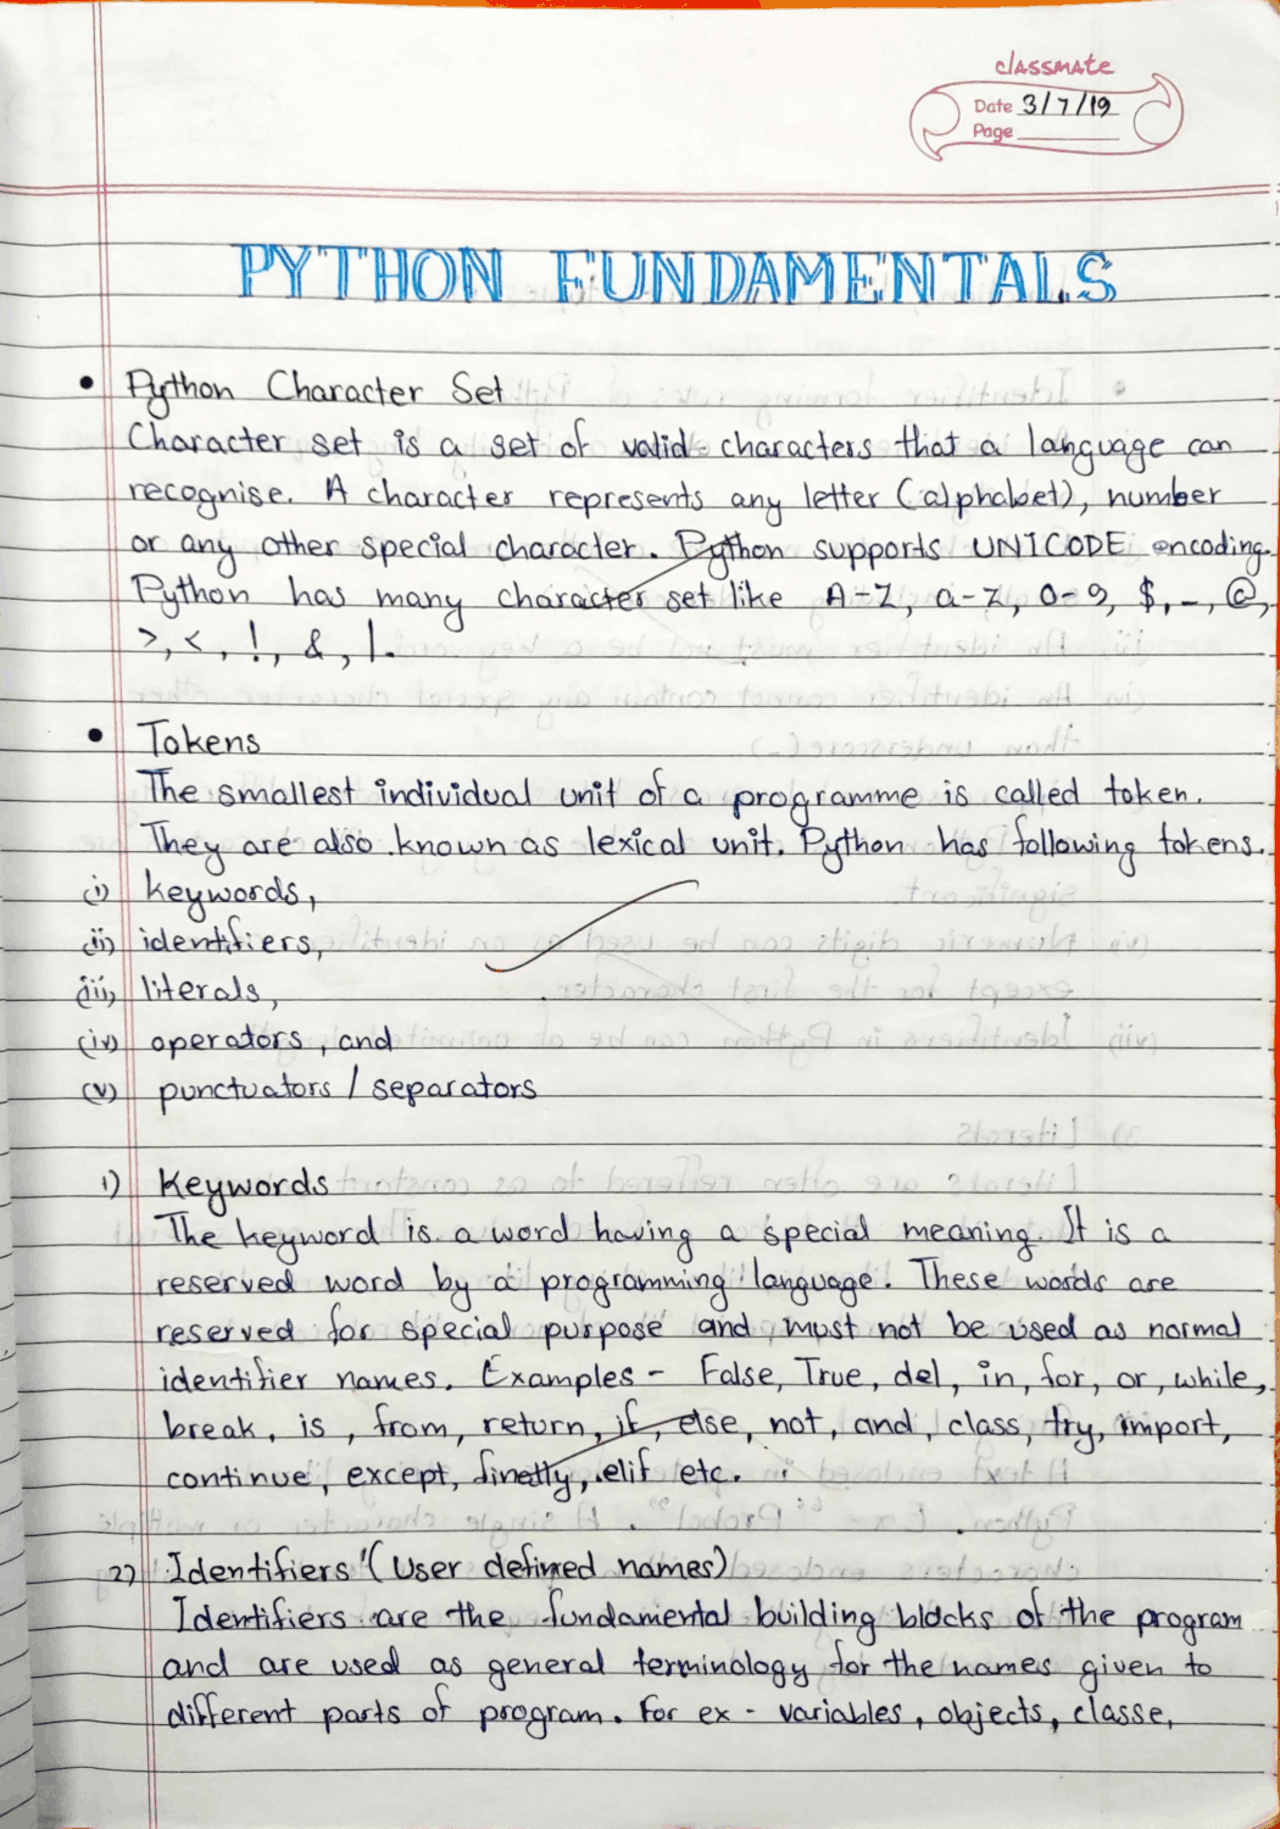 classmate
Date 3/7/19
Page
PYTHON FUNDAMENTALS
• Python Character Set
Character set is a set of valid characters that a language can
recognise. A character represents any letter (alphabet), number
or any other special character. Python supports UNICODE encoding.
Python has many character set like A-Z, a-z, 0-9, $, _, @,
>, <, !, &, |.
• Tokens
The smallest individual unit of a programme is called token.
They are also known as lexical unit. Python has following tokens.
(i) keywords,
(ii) identifiers,
(iii) literals,
(iv) operators, and
(v) punctuators / separators
1) Keywords
The keyword is a word having a special meaning. It is a
reserved word by a programming language. These words are
reserved for special purpose and must not be used as normal
identifier names. Examples - False, True, del, in, for, or, while,
break, is, from, return, if, else, not, and, class, try, import,
continue, except, finally, elif etc.
2) Identifiers (User defined names)
Identifiers are the fundamental building blocks of the program
and are used as general terminology for the names given to
different parts of program. For ex - variables, objects, classe,